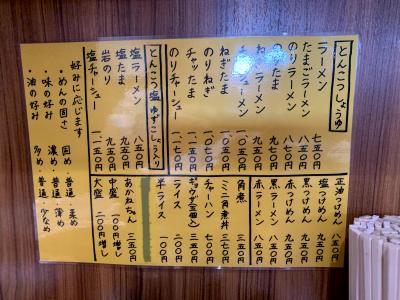 とんこつしょうゆ
ラーメン 七五〇円
たまごラーメン 八五〇円
のりラーメン 八七〇円
ねぎラーメン 九五〇円
ねぎたま
のりねぎ
チャッたま
のりチャーシュー 一、一七〇円
とんこつ塩 ゆずこしょう入り
塩ラーメン 八五〇円
塩たま 九五〇円
岩のり 九五〇円
塩チャーシュー 一、一五〇円
好みに応じます
・めんの固さ 固め・普通・柔め
・味の好み 濃め・普通・薄め
・油の好み 多め・普通・少なめ
正油つけめん 八五〇円
塩つけめん 九五〇円
黒つけめん 九五〇円
赤つけめん 九五〇円
黒ラーメン 八五〇円
赤ラーメン 八五〇円
角煮 三五〇円
ミニ角煮丼 三七〇円
チャーハン 七〇〇円
ギョウザ(五個)
ライス
半ライス 一〇〇円
あかねちゃん 三五〇円
中盛 一〇〇円増し
大盛 二〇〇円増し